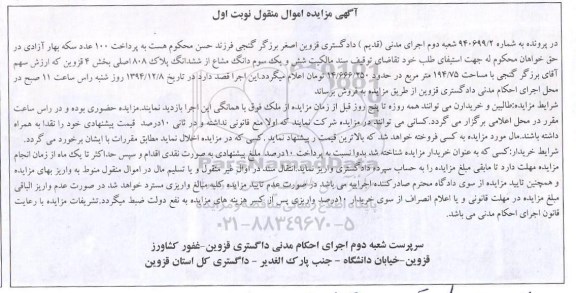 آگهی مزایده اموال منقول نوبت اول
در پرونده به شماره ۹۴۰۶۹۹/۲ شعبه دوم اجرای مدنی (قدیم) دادگستری قزوین اصغر برزگر گنجی فرزند حسن محکوم هست به پرداخت ۱۰۰ عدد سکه بهار آزادی در
حق خواهان محکوم له جهت استیفای طلب خود تقاضای توقیف سند مالکیت شش و یک سوم دانگ مشاع از ششدانگ پلاک ۸۰۸ اصلی بخش ۴ قزوین که ارزش سهم
آقای برزگر گنجی با مساحت ۱۹۴/۷۵ متر مربع در حدود ۱۴/۶۶۶/۲۵۰ تومان اعلام میگردد.این اجرا قصد دارد در تاریخ ۱۳۹۴/۱۲/۸ روز شنبه راس ساعت ۱۱ صبح در
محل اجرای احکام مدنی دادگستری قزوین از طریق مزایده به فروش برساند
شرایط مزایده:طالبین و خریداران می توانند همه روزه تا پنج روز قبل از زمان مزایده از ملک فوق با همانگی این اجرا بازدید نمایند.مزایده حضوری بوده و در راس ساعت
مقرر در محل اعلامی برگزار می گردد.کسانی می توانند در مزایده شرکت نمایند که اولا منع قانونی نداشته و در ثانی ۱۰درصد قیمت پیشنهادی خود را نقدا به همراه
داشته باشند.مال مورد مزایده به کسی فروخته خواهد شد که بالاترین قیمت را پیشنهاد نماید کسی که در مزایده اخلال نماید مطابق مقررات با ایشان برخورد می گردد.
شرایط خریدار:کسی که به عنوان خریدار مزایده شناخته شد بدوا نسبت به پرداخت ۱۰درصد مبلغ پیشنهادی به صورت نقدی اقدام و سپس حداکثر تا یک ماه از زمان انجام
مزایده مهلت دارد تا مابقی مبلغ مزایده را به حساب سپرده دادگستری واریز نماید.انتقال سند در اموال غیر منقول و یا تسلیم مال در اموال منقول منوط به واریز بهای مزایده
و همچنین تایید مزایده از سوی دادگاه محترم صادرکننده اجراییه می باشد در صورت عدم تایید مزایده کلیه مبالغ واریزی مسترد خواهد شد. در صورت عدم واریز الباقی
مبلغ مزایده در مهلت قانونی و یا اعلام انصراف از سوی خریدار ۱۰درصد واریزی پس از کسر هزینه های مزایده به نفع دولت ضبط میگردد.تشریفات مزایده با رعایت
قانون اجرای احکام مدنی می باشد.
۰۲۱-۸۸۳۴۹۶۷۰-۵
سرپرست شعبه دوم اجرای احکام مدنی دادگستری قزوین-غفور کشاورز
قزوین-خیابان دانشگاه - جنب پارک الغدیر - دادگستری کل استان قزوین